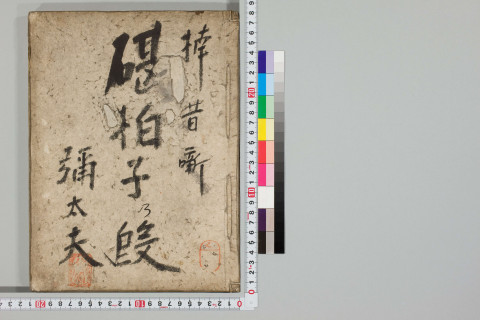 昔噺
碪拍子乃段
彌太夫